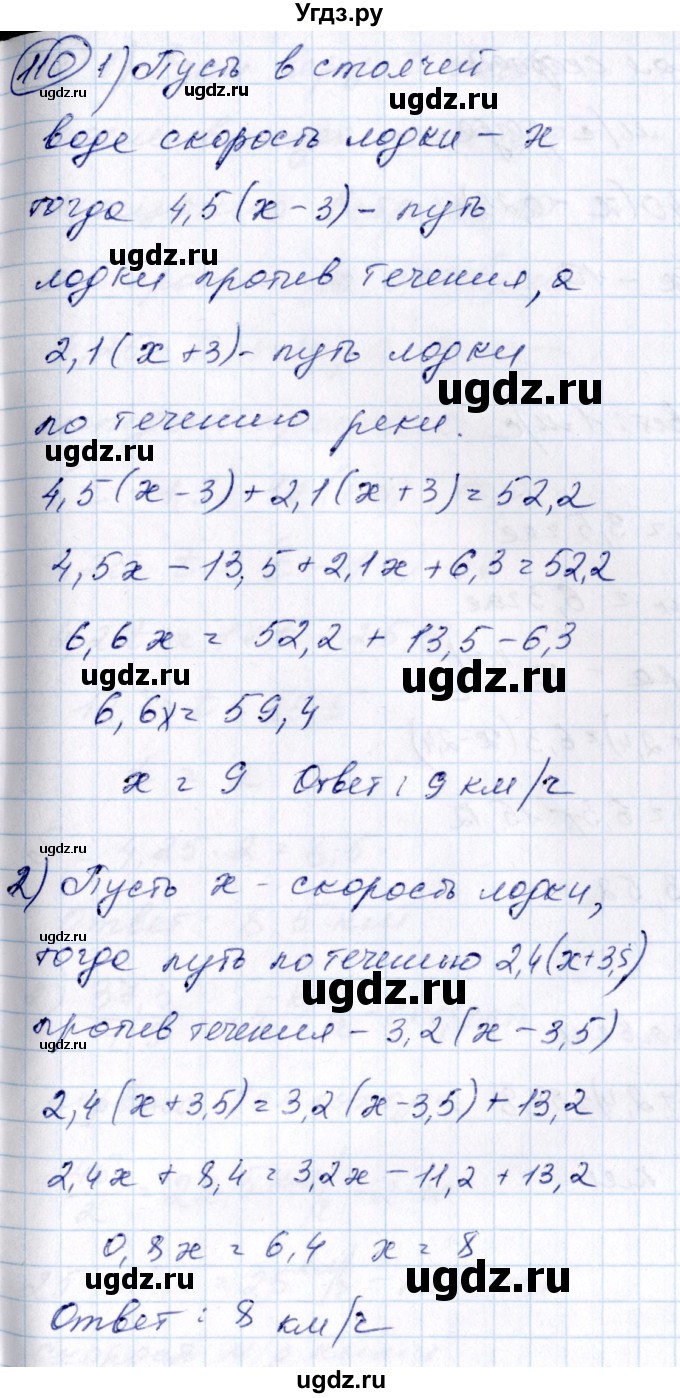 Угдз.ру
110 1) Пусть в столчей
ugdz.ru ugdz.ru
воде скорость лодки – x
тогда 4,5(x – 3) – путь
ugdz.ru ugdz.ru
лодки против течения, а
2,1(x + 3) – путь лодки
ugdz.ru
по течению реки.
ugdz.ru
4,5(x – 3) + 2,1(x + 3) = 52,2
ugdz.ru
4,5x – 13,5 + 2,1x + 6,3 = 52,2
6,6x = 52,2 + 13,5 – 6,3
ugdz.ru ugdz.ru
6,6x = 59,4
x = 9 Ответ: 9 км/ч
ugdz.ru
2) Пусть x – скорость лодки,
ugdz.ru
тогда путь по течению 2,4(x+3,5)
ugdz.ru
против течения – 3,2(x – 3,5)
ugdz.ru
2,4(x+3,5) = 3,2(x – 3,5) + 13,2
ugdz.ru
2,4x + 8,4 = 3,2x – 11,2 + 13,2
0,8x = 6,4 x = 8
ugdz.ru ugdz.ru
Ответ: 8 км/ч
ugdz.ru